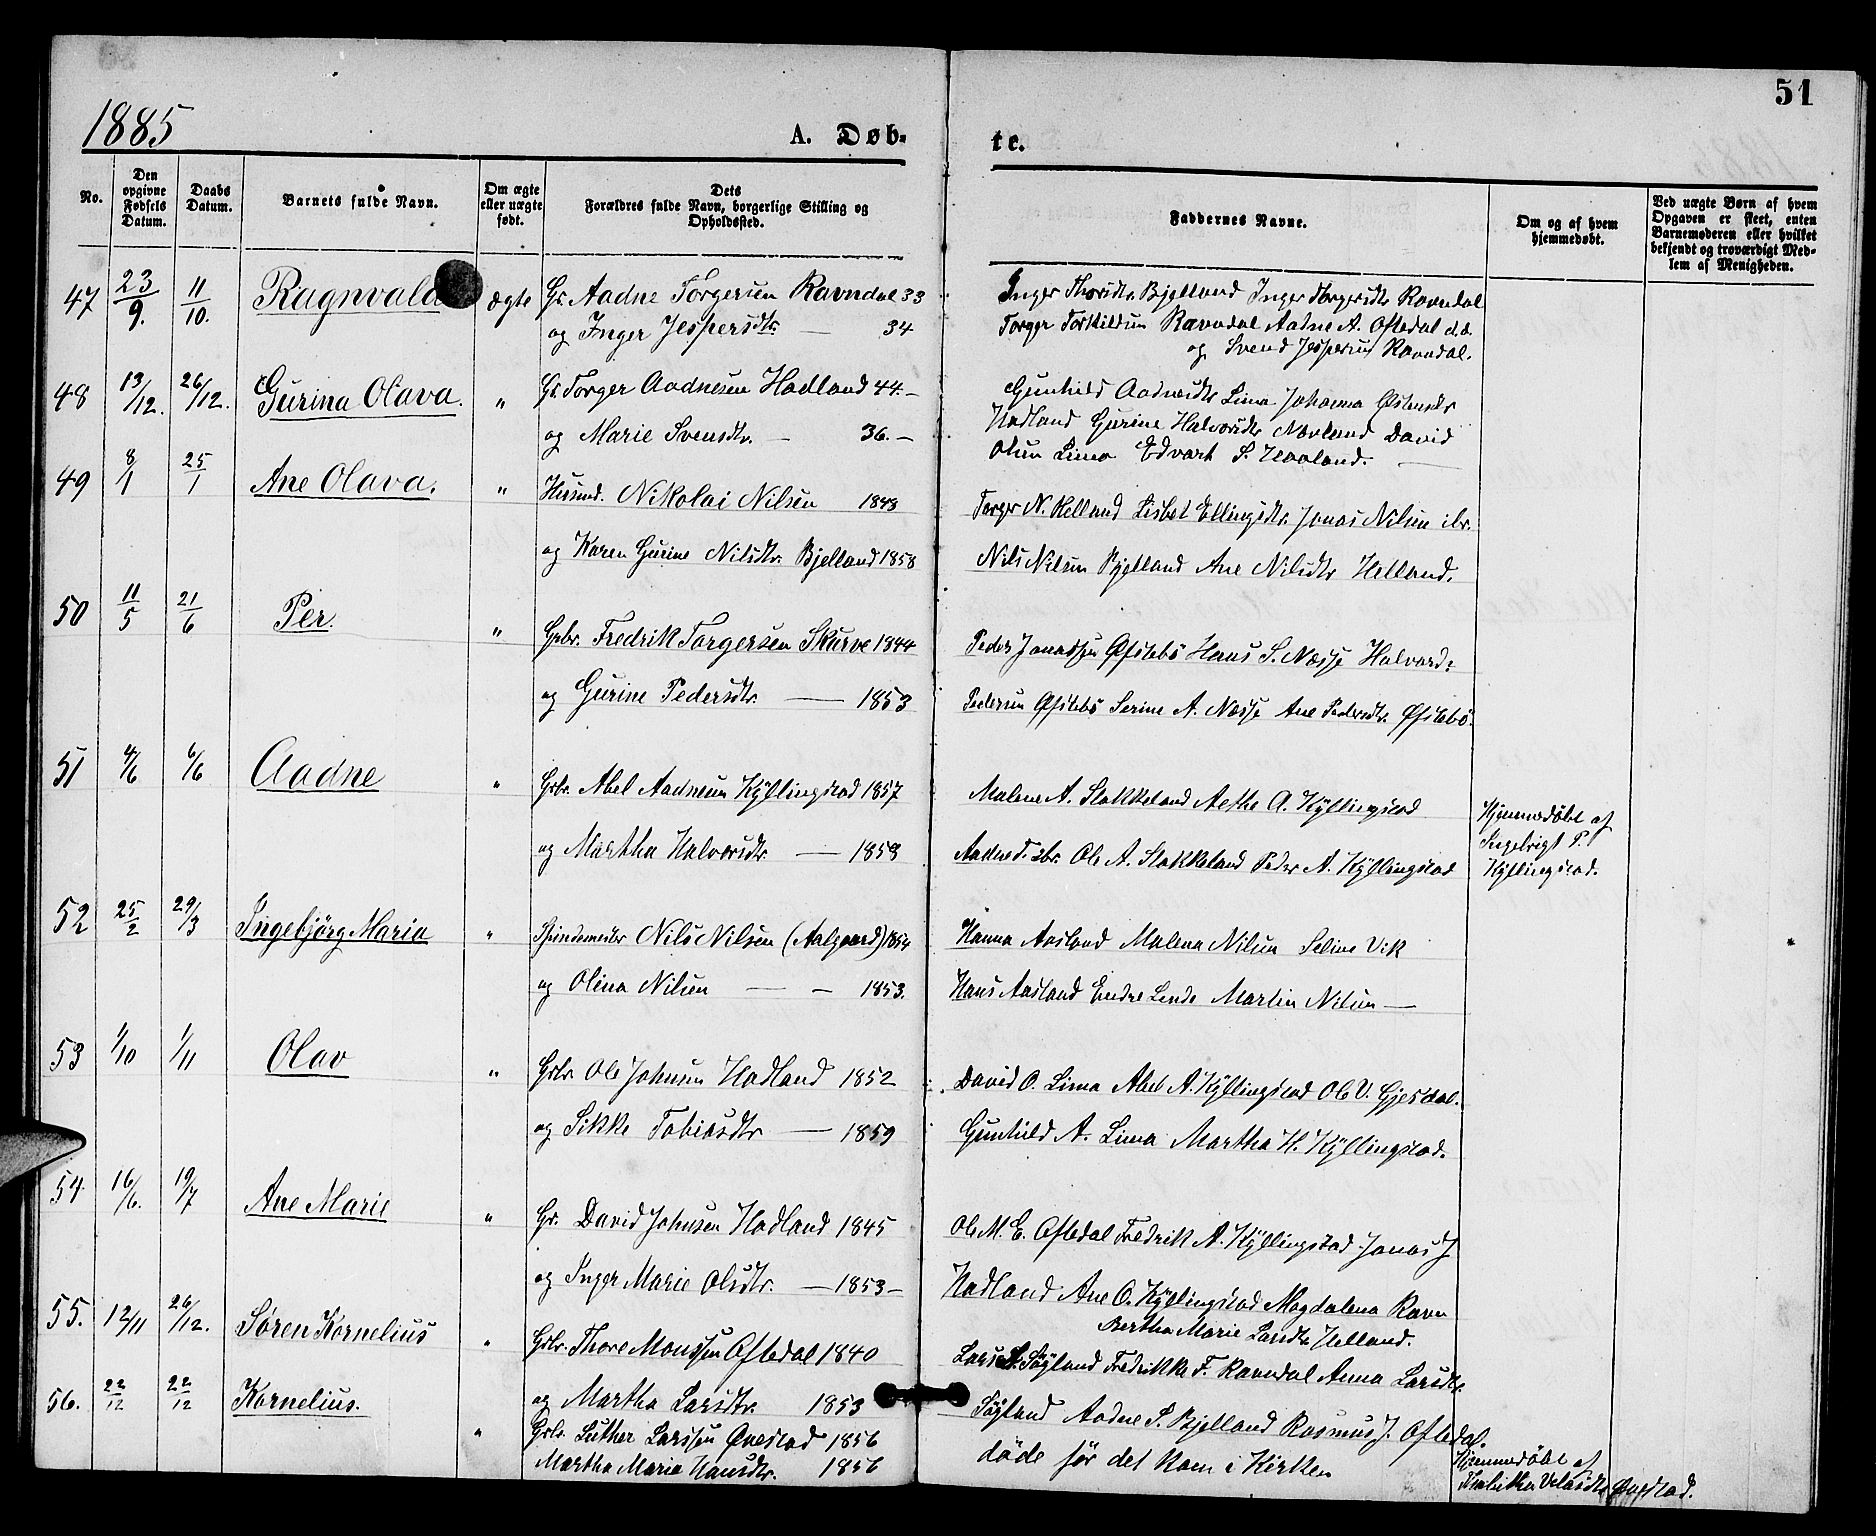 51
1885
A. Døb-
te.
No.
Den opgivne Fødsels Datum.
Daabs Datum.
Barnets fulde Navn.
Om ægte eller uægte født.
Dets Forældres fulde Navn, borgerlige Stilling og Opholdssted.
Faddernes Navne.
Om og af hvem hjemmedøbt.
Ved uægte Børn af hvem Opgaven er skeet, enten Barnemoderen eller hvilket bekjendt og troværdigt Medlem af Menigheden.
47 23/9. 11/10. Ragnvald ægte Gr. Aadne Torgersen Ravndal 33
og Inger Jespersdtr. — 34
Inger Thorsdtr Bjelland Inger Torgersdtr Ravndal
Torger Torkildsen Ravndal Aadne A. Oftedal
og Svend Jespersen Ravndal.
48 13/12. 26/12. Gurina Olava. " Gr. Torger Aadnesen Hadland 44.-
og Marie Svensdtr. — 36.-
Gunhild Aadnesdtr Lima Johanna
Hadland Gurine Halvorsdtr David
Olsen Lima Edvart S. Haaland. —
49 8/1 25/1 Ane Olava. " Husmd. Nikolai Nilsen 1843
og Karen Gurine Nilsdtr. Bjelland 1858
Torger N. Helland Lisbet Ellingsdtr. Jonas Nilsen ibr.
Nils Nilsen Bjelland Ane Nilsdtr Helland.
50 11/5 21/6 Per. " Grbr. Fredrik Torgersen Skurve 1844
og Gurine Pedersdtr. — 1853
Peder Jonassen Øfstebö Hans S. Næsse Halvard
Pedersen Øfstebö Serine A. Næsse Ane Pedersdtr. Øfstebö.
51 4/6 6/6 Aadne " Grbr. Abel Aadnesen Kyllingstad 1857
og Martha Halvorsdtr. — 1858
Malene A. Stakkeland Aethe A. Kyllingstad
Aadne T. ibr. Ole A. Stakkeland Peder A. Kyllingstad
Hjemmedöbt af
Ingebrigt P.
Kyllingstad.
52 25/2 29/3 Ingebjörg Maria " Spindemester Nils Nilsen (Aalgaard) 1854
og Olina Nilsen — — 1853.
Hanna Aasland Malena Nilsen Seline Vik
Hans Aasland Endre Lende Martin Nilsen —
53 1/10 1/11 Olav " Grbr. Ole Johnsen Hadland 1852
og Sikke Tobiasdtr — 1859
David O. Lima Abel A. Kyllingstad Ole V. Gjesdal.
Gunhild A. Lima Martha H. Kyllingstad.
54 16/6. 19/7 Ane Marie " Gr. David Johnsen Hadland 1845
og Inger Marie Olsdtr. — 1853 —
Ole M. E. Oftedal Fredrik A. Kyllingstad Jonas J.
Hadland Ane O. Kyllingstad Magdalena Ravn
Bertha Marie Larsdtr Helland.
55. 12/11 26/12. Søren Kornelius " Grbr. Thore Monssen Oftedal 1840
og Martha Larsdtr. 1853
Lars S. Søyland Fredrikke F. Ravndal Anna Larsdtr.
Søyland Aadne S. Bjelland Rasmus J. Oftedal.
56. 22/12 22/12 Kornelius. " Grbr. Luther Larssen Ønestad 1856
Martha Marie Hansdtr. 1856
döde för det kom i Kirken
Hjemmedöbt af
Velasdtr Ønestad.